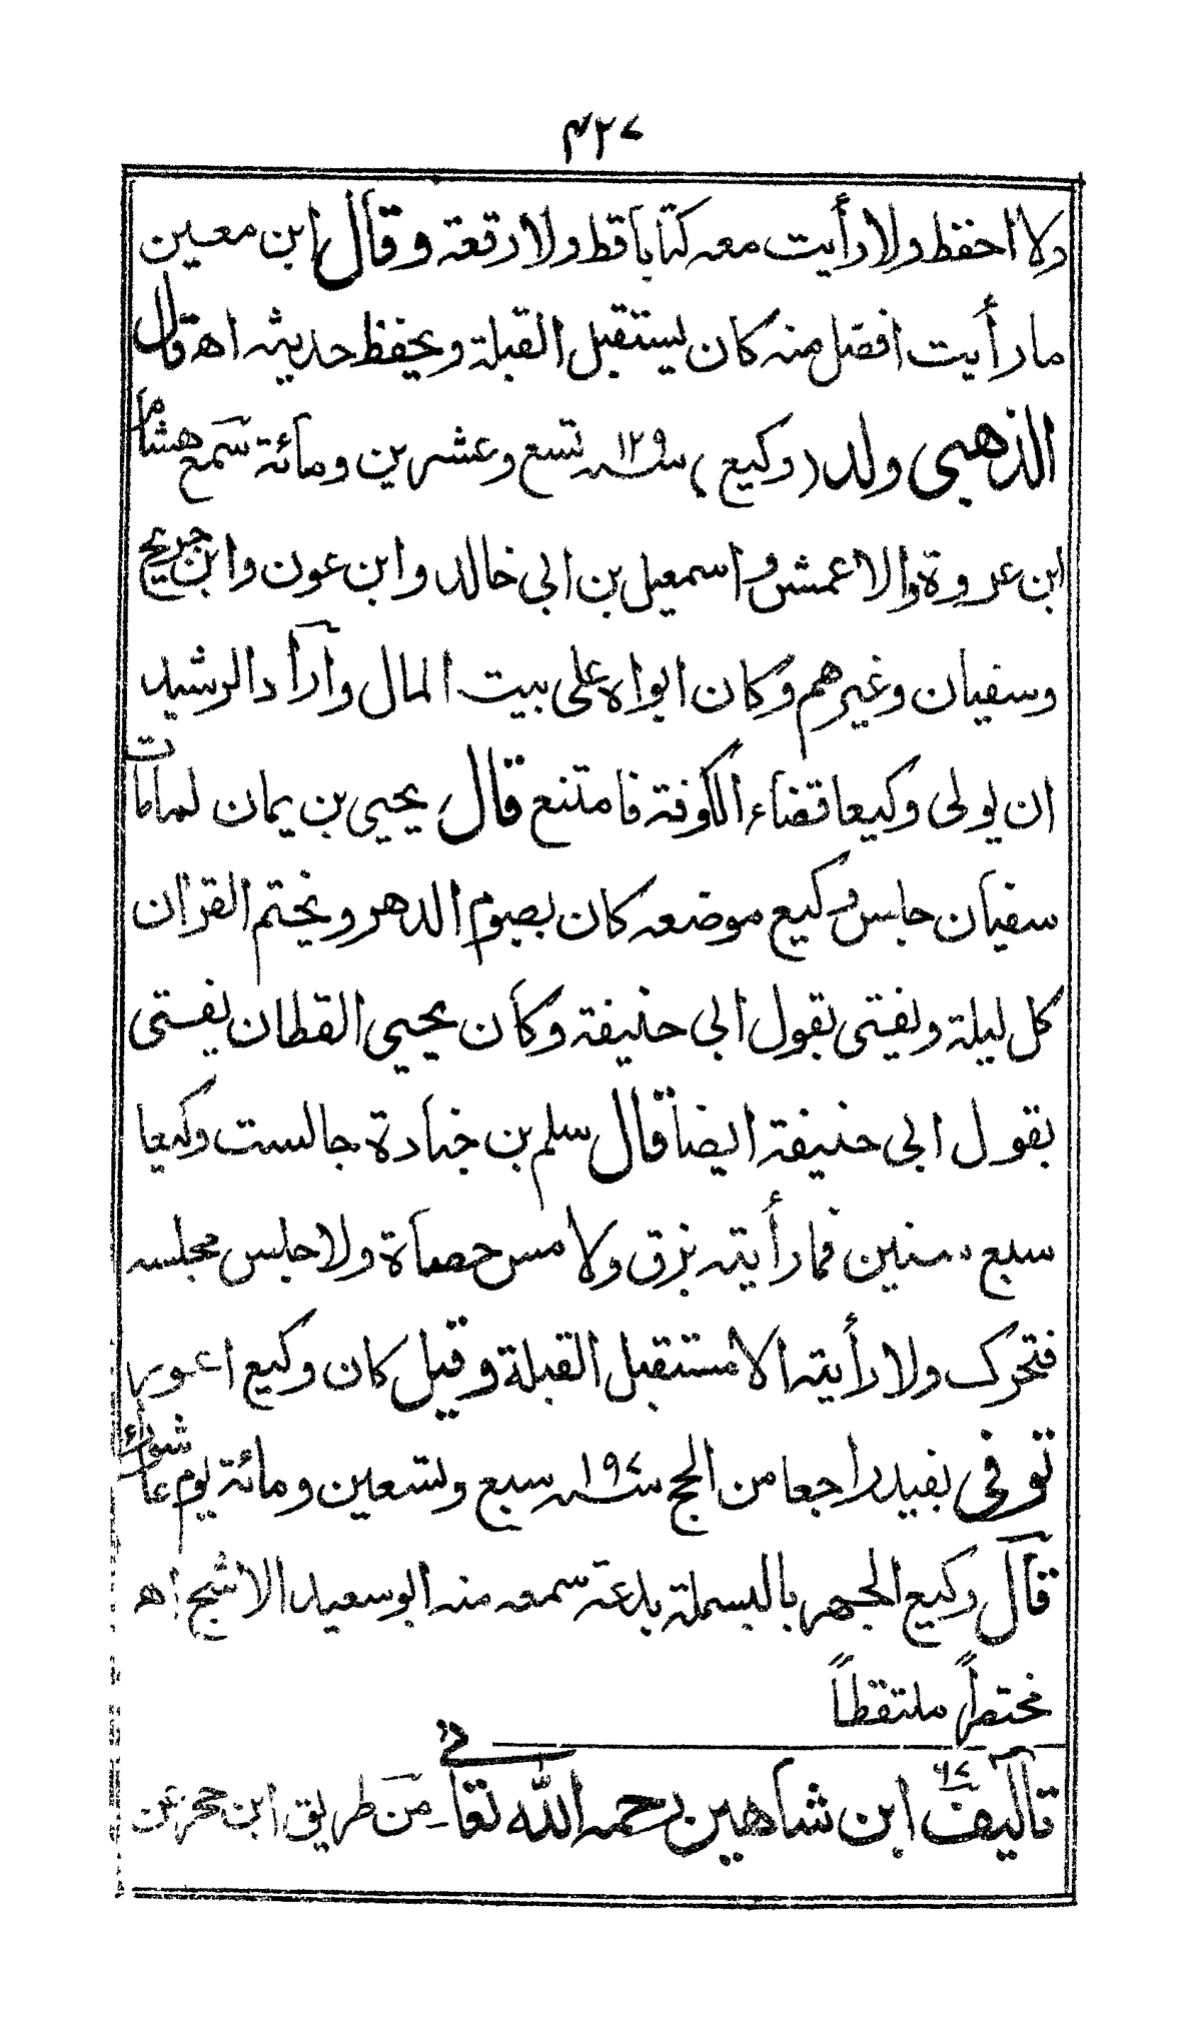 ۴۲۷
ولا احفظ ولا رأيت معه كتابا قط ولا رقعة وقال ابن معين
ما رأيت افضل منه كان يستقبل القبلة ويحفظ حديثه اه قال
الذهبى ولد (وكيع) سنة ۱۲۹ تسع وعشرين ومائة سمع هشام
ابن عروة والاعمش واسمعيل بن ابى خالد وابن عون وابن جريج
وسفيان وغيرهم وكان ابواه على بيت المال وآراد الرشيد
ان يولى وكيعا قضاء الكوفة فامتنع قال يحيى بن يمان لما مات
سفيان جلس وكيع موضعه كان يصوم الدهر ويختم القرآن
كل ليلة ويفتى بقول ابى حنيفة وكان يحيى القطان يفتى
بقول ابى حنيفة ايضا قال سلم بن جنادة جالست وكيعا
سبع سنين فما رأيته بزق ولا مس حصاة ولا جلس مجلسه
فتحرك ولا رأيته الا مستقبل القبلة وقيل كان وكيع اعور
توفى بفيد راجعا من الحج سنة ۱۹۷ سبع وتسعين ومائة يوم عاشوراء
قال وكيع الجهر بالبسملة بدعة سمعه منه ابو سعيد الاشج اه
مختصراً ملتقطاً
تآليف ابن شاهين رحمه الله تعالى من طريق ابن حجر عن